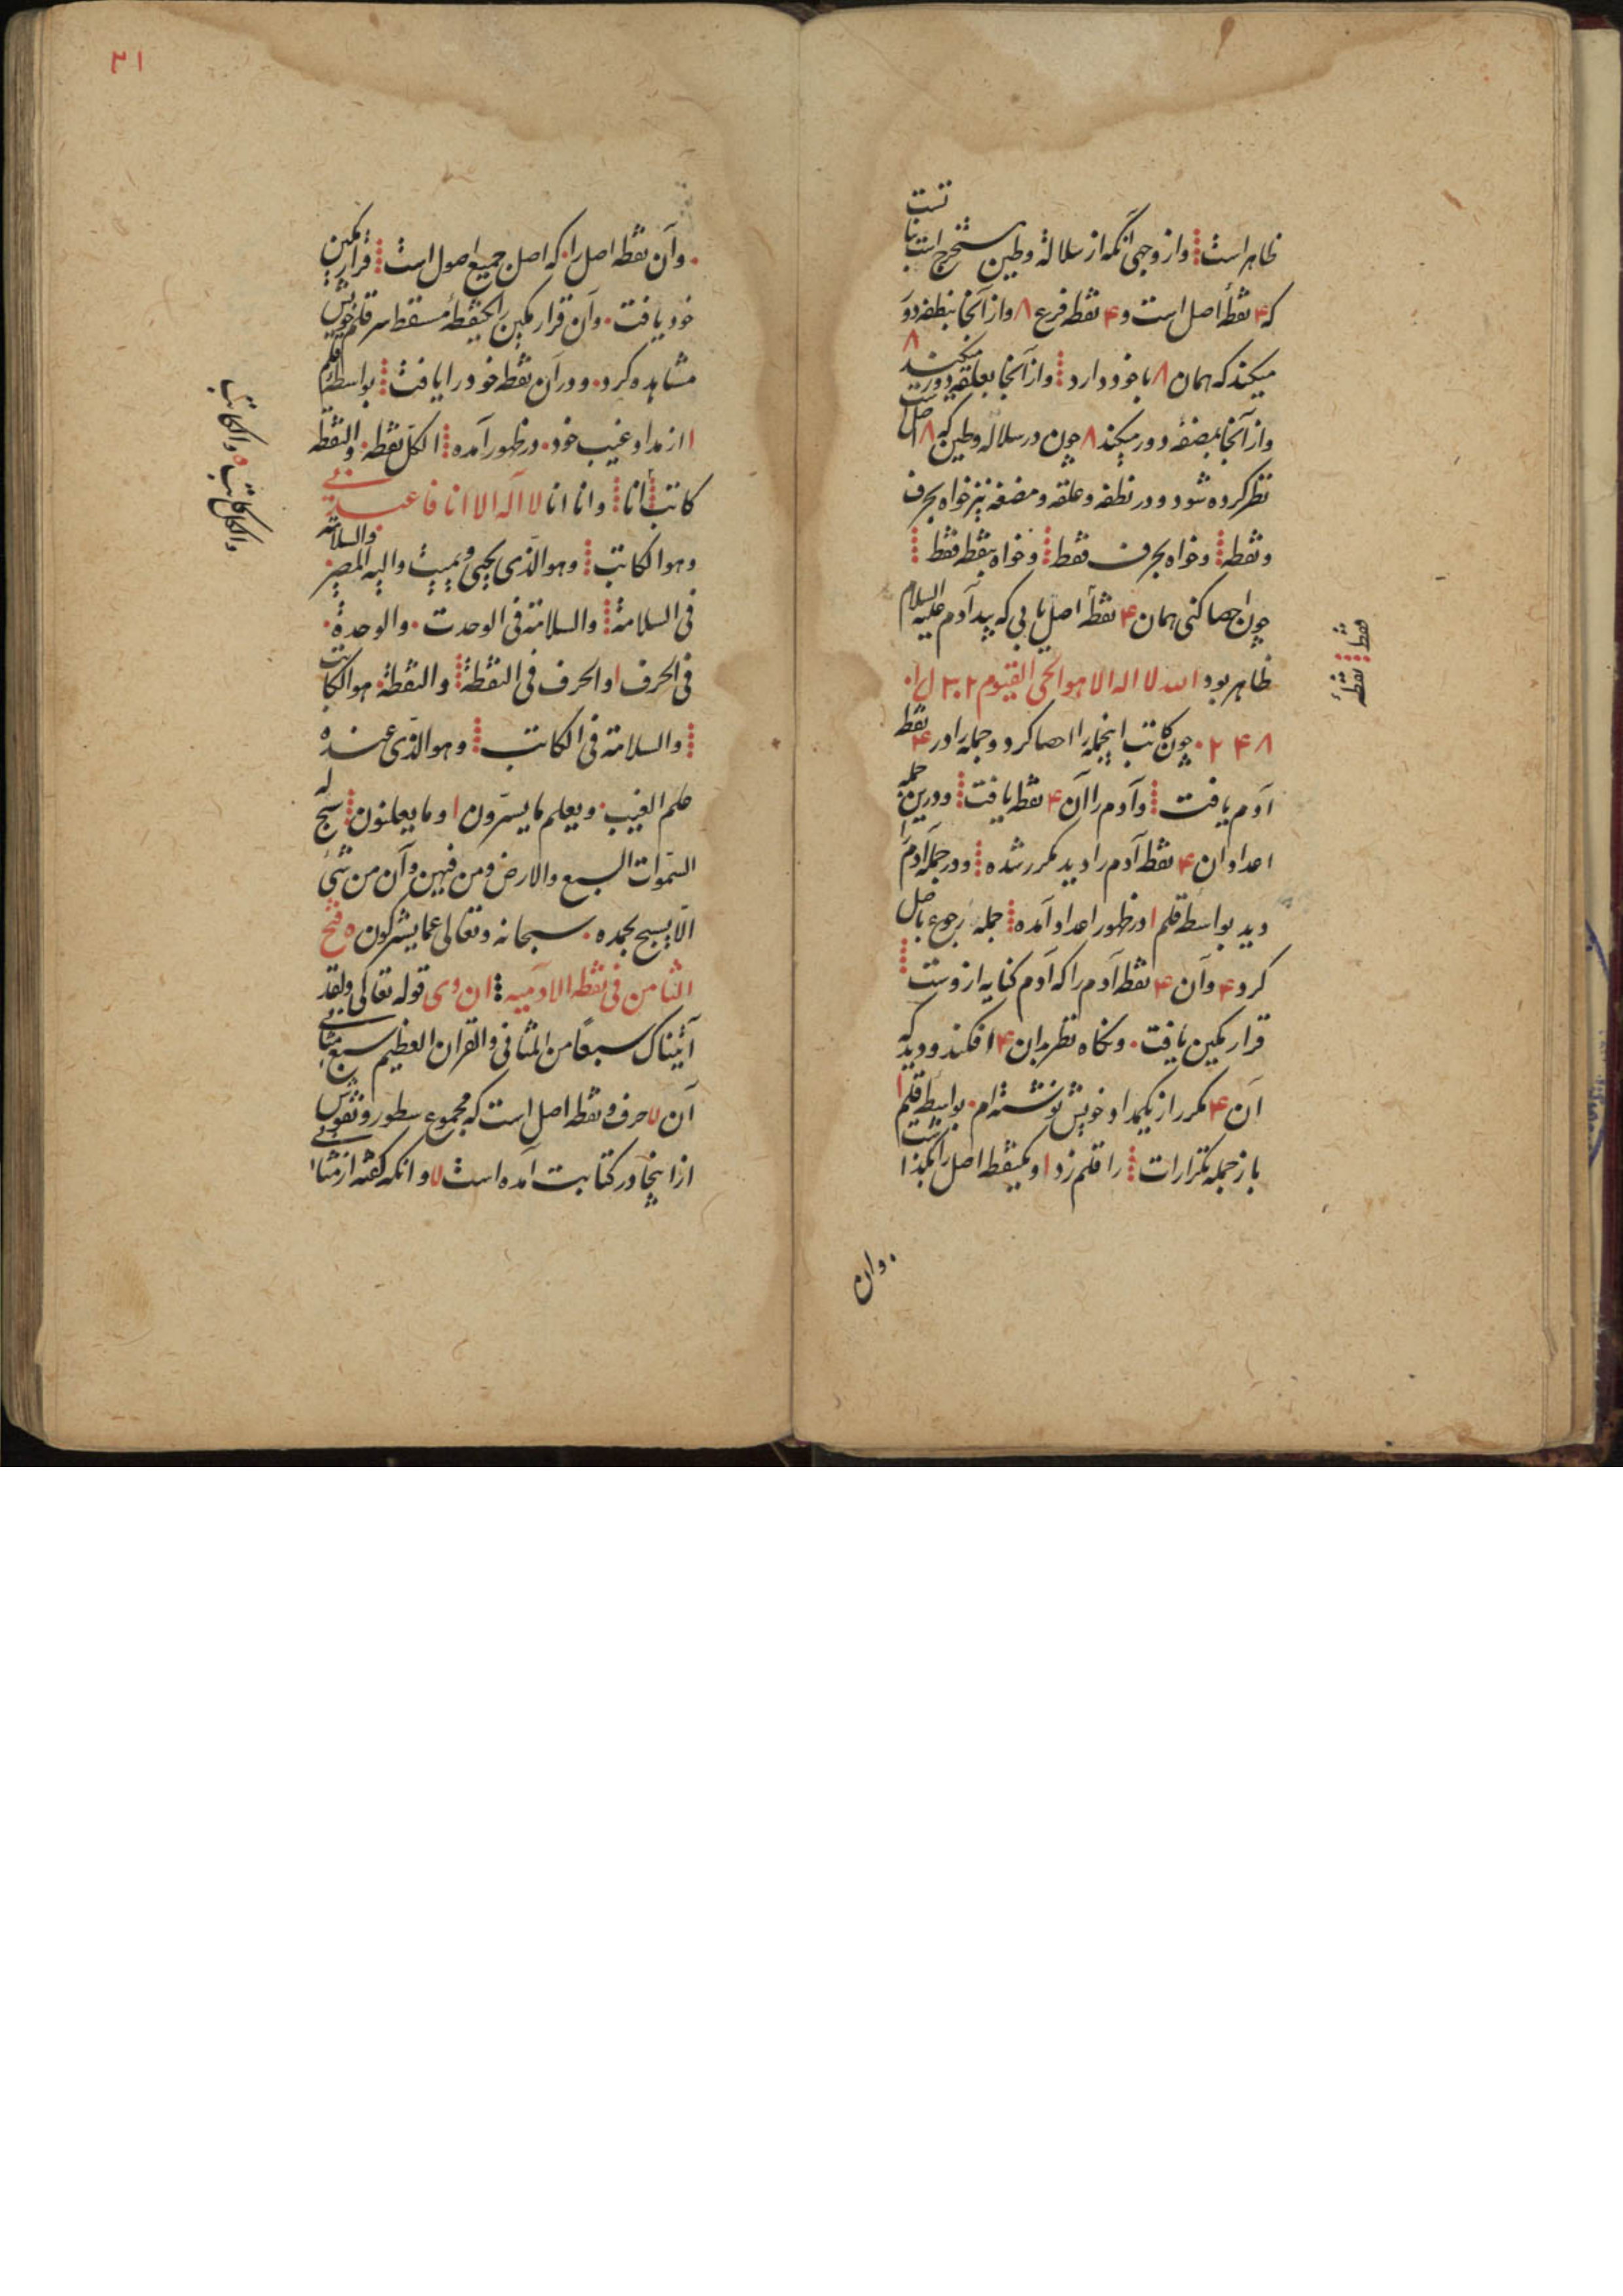 ظاهر است ⁞ و از وجهی آنکه از سلاله و طین مستخرج است
که ۴ نقطهٔ اصل است و ۴ نقطه فرع ۸ و از آنجا بنطفه دور
میکند که همان ۸ با خود دارد ⁞ و از آنجا بعلقه دور میکند ۸
و از آنجا بمضغه دور میکند ۸ چون در سلاله و طین که ۸ اصل است
نظر کرده شود و در نطفه و علقه و مضغه نیز خواه بحرف
و نقطه ⁞ و خواه بحرف فقط ⁞ و خواه بنقطه فقط ⁞
چون احصا کنی همان ۴ نقطهٔ اصل یابی که پیدا آدم علیه السلام
ظاهر بود الله لا اله الا هو الحی القیوم
۲ ۴ ۸ . چون کاتب اینجمله را احصا کرد و جمله را در ۴ نقطه
آدم یافت ⁞ و آدم را آن ۴ نقطه یافت ⁞ و درین جمله
اعداد ان ۴ نقطه آدم را دید مکرر شده ⁞ و در جمله آدم را
دید بواسطه قلم ا در ظهور اعداد آمده ⁞ جمله رجوع باصل
کرد ۴ و آن ۴ نقطه آدم را که آدم کنایه ازوست ⁞
قرار مکین یافت . و نگاه نظر بران ۴ افکند و دید که
آن ۴ مکرر از یکمداد خویش نوشته ام . بواسطه قلم ا
باز جمله تکرارات ⁞ را قلم زد ا و یکنقطه اصل را بگذاشت
. وان
فقط ⁞ نقطهٔ
۳۱
. و آن نقطه اصل را . که اصل جمیع اصول است ⁞ قرار مکین
خود یافت . و آن قرار مکین را یکنقطهٔ مسقط سر قلم خویش
مشاهده کرد . و در آن نقطه خود را یافت ⁞ بواسطهٔ قلم
ا از مداد غیب خود . در ظهور آمده ⁞ الکل نقطه . والنقطه
کاتب ⁞ انا ⁞ وانا انا لا اله الا انا فاعبدنی
وهو الکاتب ⁞ وهو الذی یحیی و یمیت والیه المصیر . والسلامة
فی السلامة ⁞ والسلامة فی الوحدت . والوحدة .
فی الحرف ا والحرف فی النقطة ⁞ والنقطة . هو الکاتب
⁞ والسلامة فی الکاتب ⁞ وهو الذی عنده
علم الغیب . و یعلم ما یسرّون ا وما یعلنون ⁞ سبح له
السّموات السبع والارض ومن فیهن وان من شیٔ
الّا یسبح بحمده . سبحانه وتعالی عما یشرکون ه فتح
الثامن فی نقطه الادمیه ⁞ ان وی قوله تعالی ولقد
آتیناک سبعًا من المثانی والقران العظیم سبع مثانی
آن لا حرف و نقطه اصل است که مجموع سطور و نقوش
ازاینجا در کتابت آمده است لا و انکه گفته از مثانی
والکل کاتب ه والکاتب